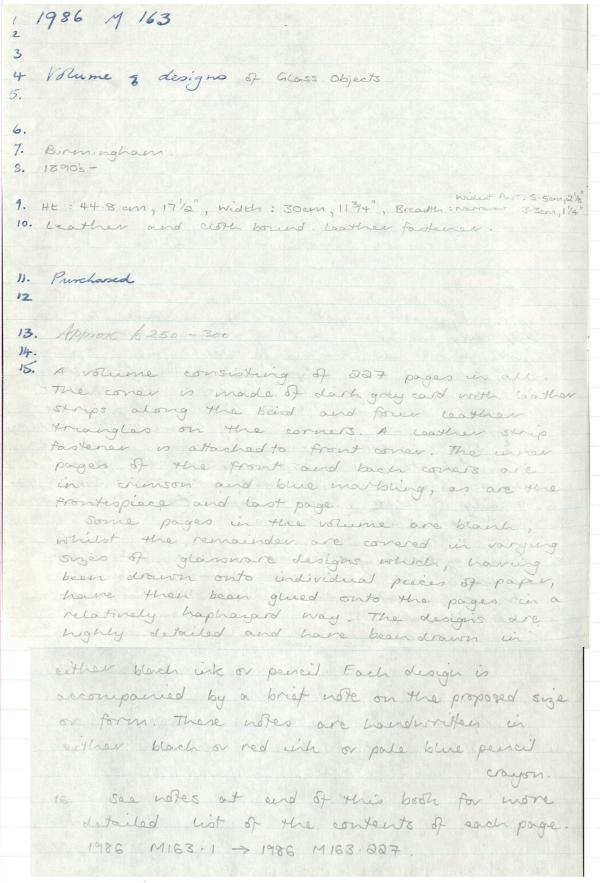 1 1986 M 163
2
3
4 Volume of designs of Glass Objects
5.
6.
7. Birmingham.
8. 1890's -
Widest Part: 5.5cm, 2 1/4"
9. Ht : 44.8 cm, 17 1/2", Width : 30cm, 11 3/4", Breadth : narrowest 3.3cm, 1 1/4"
10. Leather and cloth bound. Leather fastener.
11. Purchased
12
13. Approx £250 - 300
14.
15. A volume consisting of 227 pages in all.
The cover is made of dark grey card with leather
strips along the bind and four leather
triangles on the corners. A leather strip
fastener is attached to front cover. The inner
pages of the front and back covers are
in crimson and blue marbling, as are the
frontispiece and last page.
Some pages in the volume are blank,
whilst the remainder are covered in varying
sizes of glassware designs which, having
been drawn onto individual peices of paper,
have then been glued onto the pages in a
relatively haphazard way. The designs are
highly detailed and have been drawn in
either black ink or pencil. Each design is
accompanied by a brief note on the proposed size
or form. These notes are handwritten in
either black or red ink or pale blue pencil
crayon.
See notes at end of this book for more
detailed list of the contents of each page.
1986 M163.1 → 1986 M163.227.